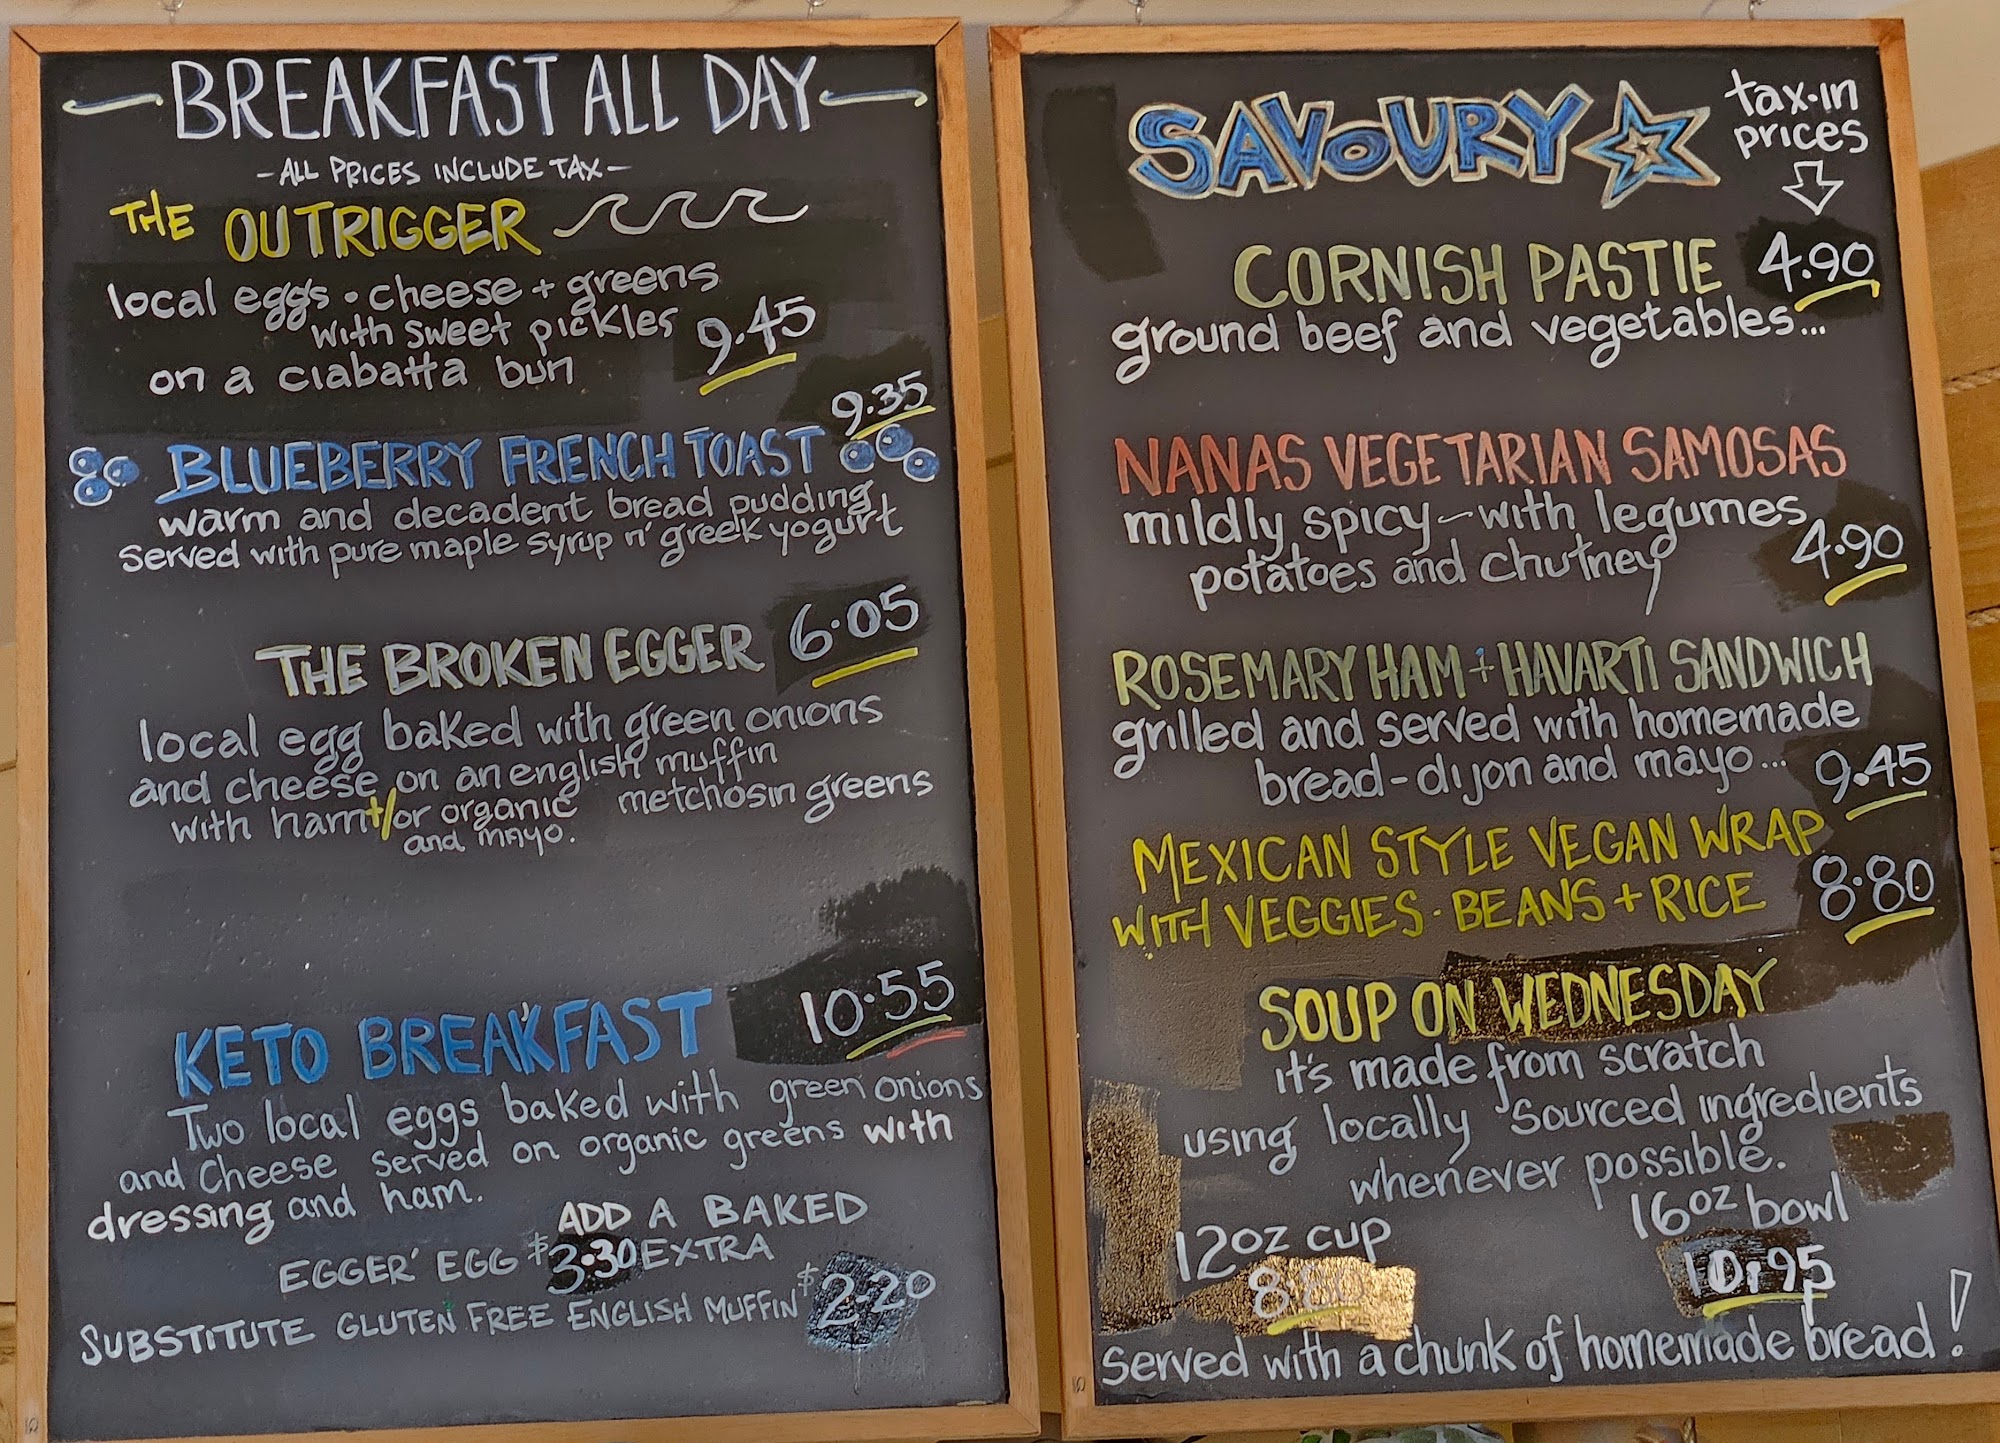 BREAKFAST ALL DAY
- ALL PRICES INCLUDE TAX -
THE OUTRIGGER
local eggs • cheese + greens
with sweet pickles
on a ciabatta bun
9.45
9.35
BLUEBERRY FRENCH TOAST
warm and decadent bread pudding
served with pure maple syrup n' greek yogurt
THE BROKEN EGGER 6.05
local egg baked with green onions
and cheese on an english muffin
with ham +/or organic metchosin greens
and mayo.
KETO BREAKFAST 10.55
Two local eggs baked with green onions
and cheese served on organic greens with
dressing and ham.
ADD A BAKED
EGGER' EGG $3.30 EXTRA
SUBSTITUTE GLUTEN FREE ENGLISH MUFFIN $2.20
SAVOURY
tax-in
prices
CORNISH PASTIE 4.90
ground beef and vegetables...
NANAS VEGETARIAN SAMOSAS
mildly spicy - with legumes
potatoes and chutney
4.90
ROSEMARY HAM + HAVARTI SANDWICH
grilled and served with homemade
bread - dijon and mayo... 9.45
MEXICAN STYLE VEGAN WRAP
WITH VEGGIES • BEANS + RICE 8.80
SOUP ON WEDNESDAY
it's made from scratch
using locally sourced ingredients
whenever possible.
12oz cup
8.80
16oz bowl
10.95
served with a chunk of homemade bread!